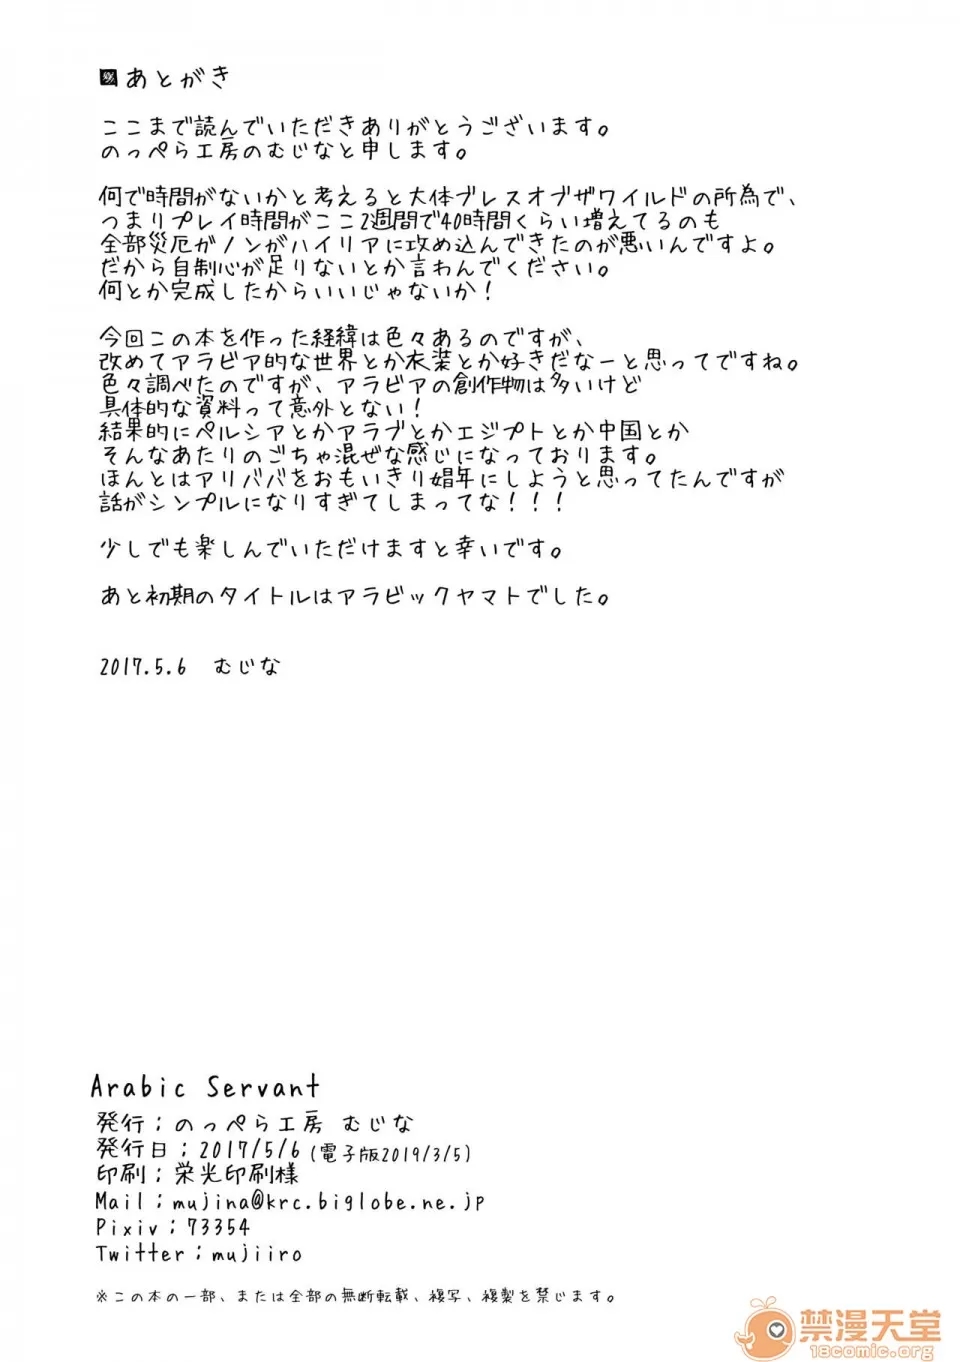 あとがき
ここまで読んでいただきありがとうございます。
のっぺら工房のむじなと申します。
何で時間がないかと考えると大体ブレスオブザワイルドの所為で、
つまりプレイ時間がここ2週間で40時間くらい増えてるのも
全部災厄ガノンがハイリアに攻め込んできたのが悪いんですよ。
だから自制心が足りないとか言わんでください。
何とか完成したからいいじゃないか！
今回この本を作った経緯は色々あるのですが、
改めてアラビア的な世界とか衣装とか好きだなーと思ってですね。
色々調べたのですが、アラビアの創作物は多いけど
具体的な資料って意外とない！
結果的にペルシアとかアラブとかエジプトとか中国とか
そんなあたりのごちゃ混ぜな感じになっております。
ほんとはアリババをおもいきり娼年にしようと思ってたんですが
話がシンプルになりすぎてしまってな！！！
少しでも楽しんでいただけますと幸いです。
あと初期のタイトルはアラビックヤマトでした。
2017.5.6 むじな
Arabic Servant
発行；のっぺら工房 むじな
発行日；2017/5/6 (電子版2019/3/5)
印刷；栄光印刷様
Mail；mujina@krc.biglobe.ne.jp
Pixiv；73354
Twitter；mujiiro
※この本の一部、または全部の無断転載、複写、複製を禁じます。
禁漫天堂
18comic.org